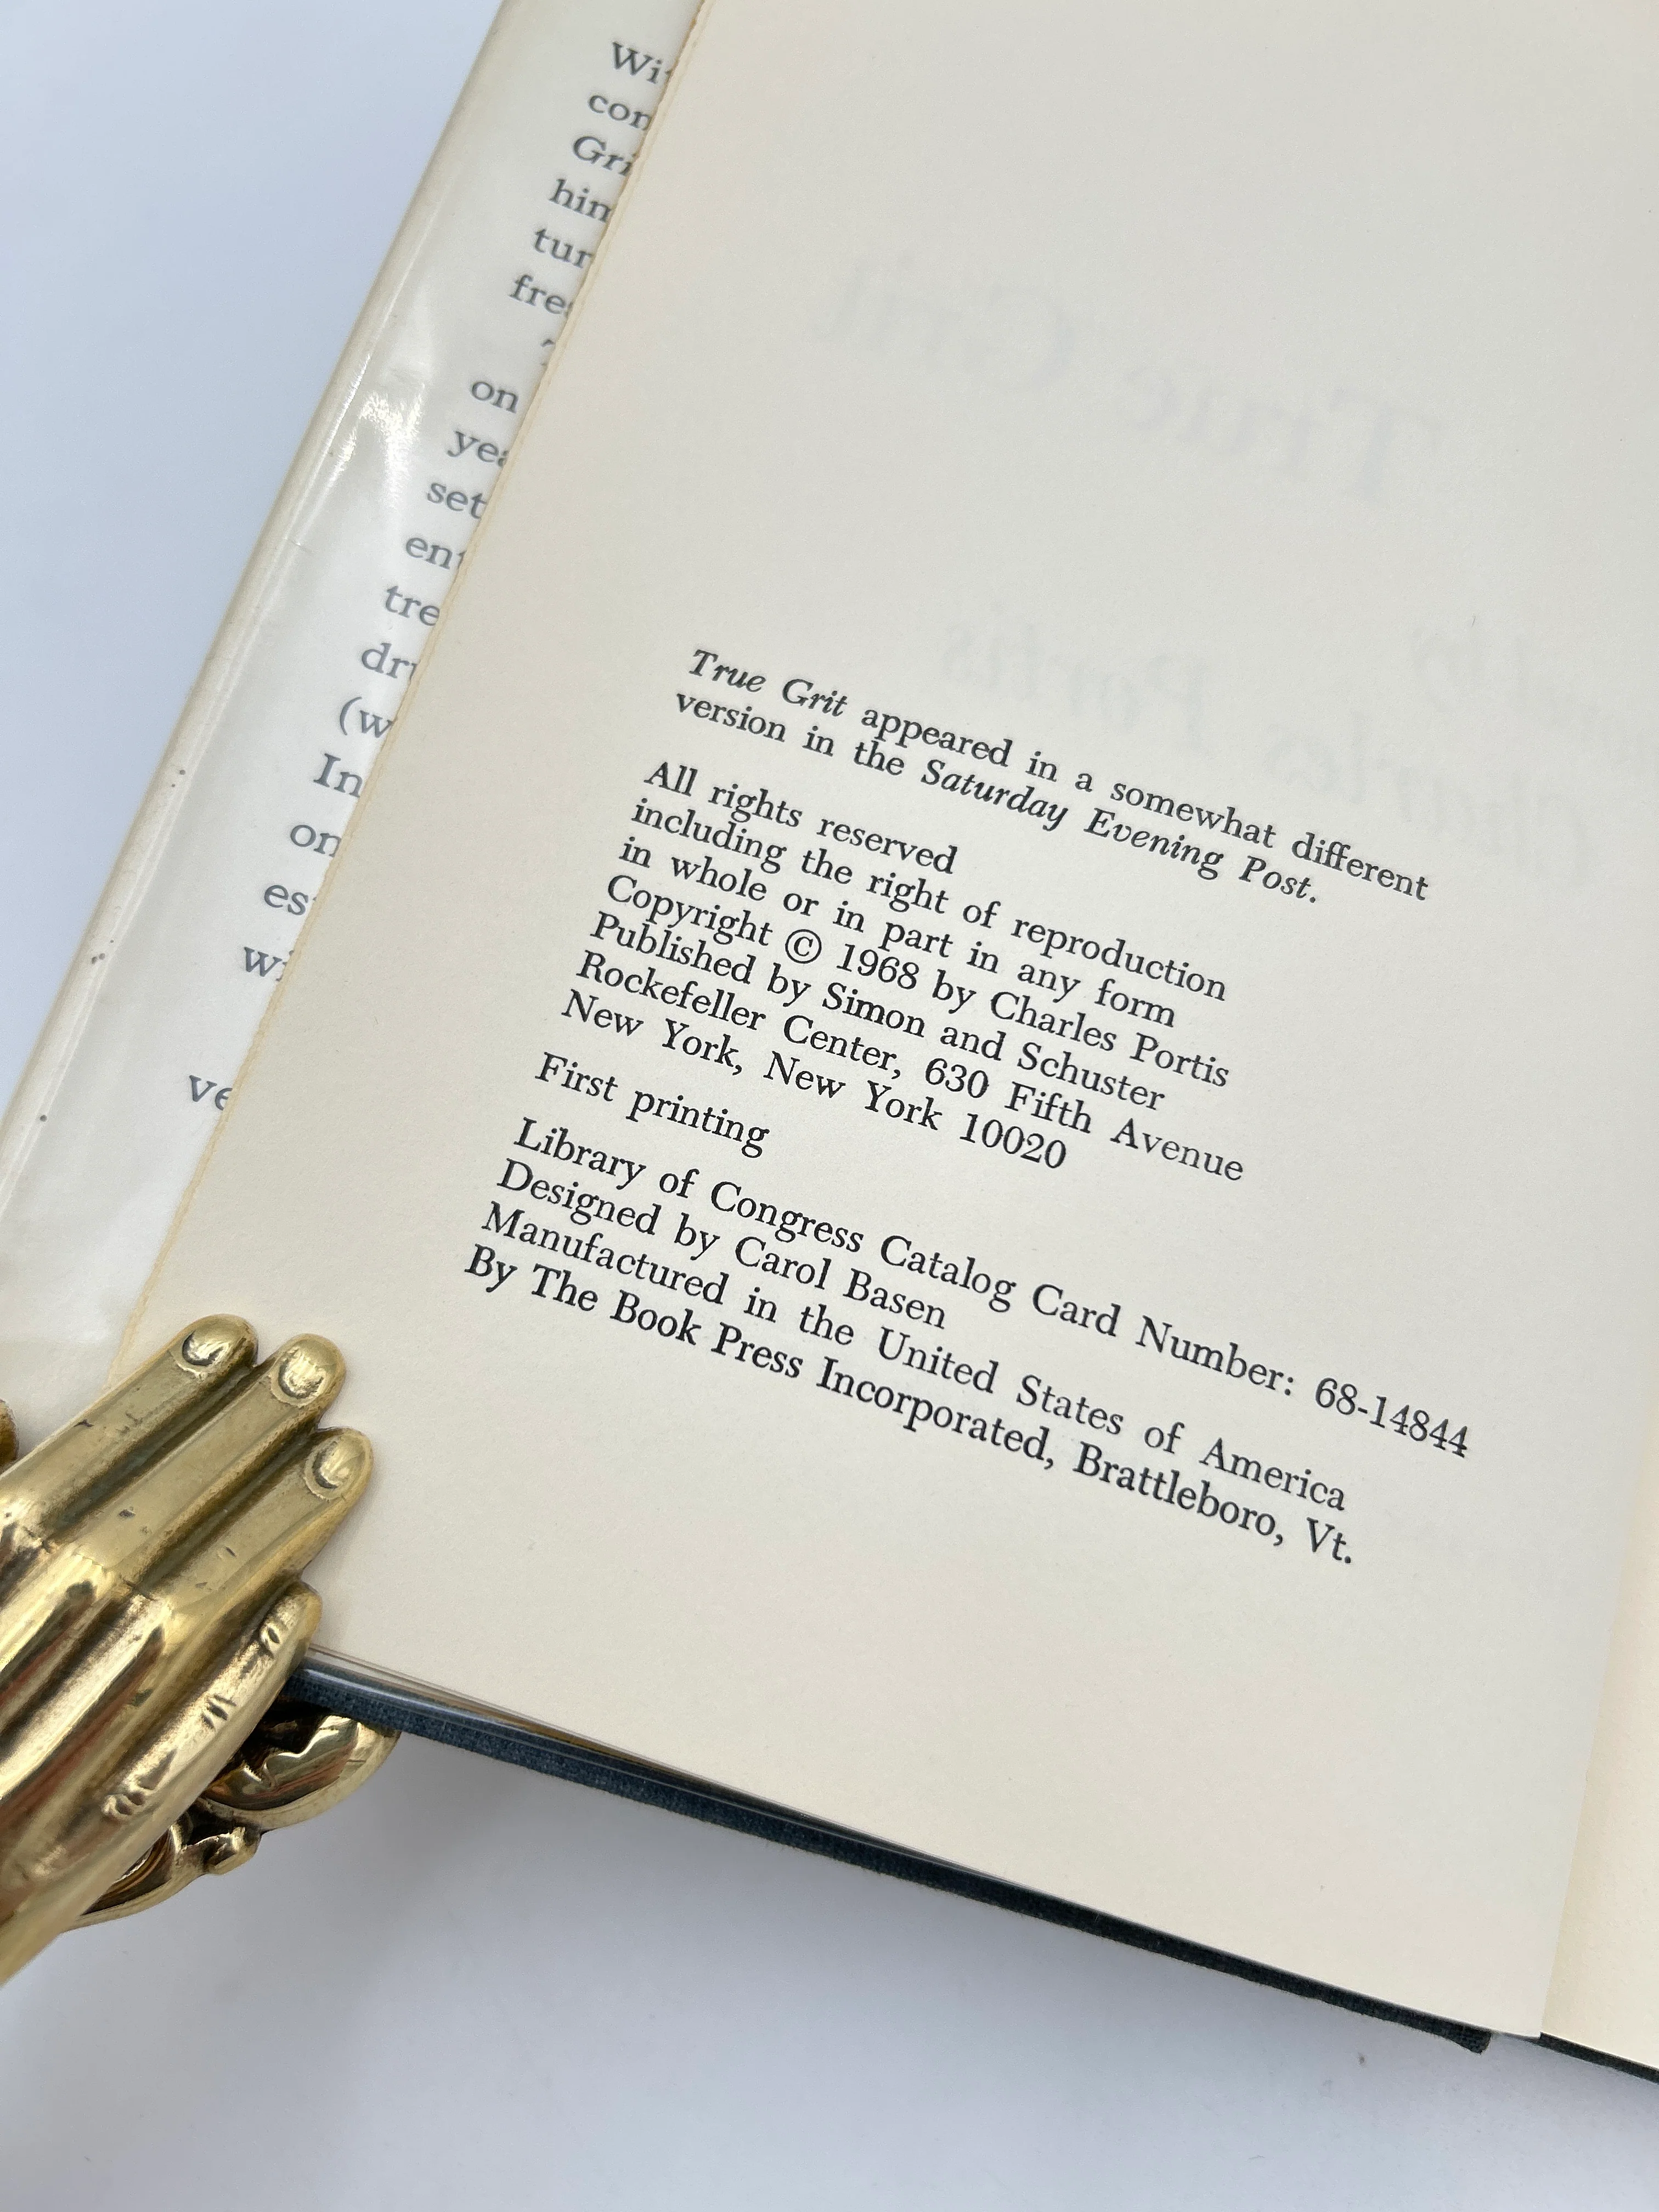 True Grit appeared in a somewhat different
version in the Saturday Evening Post.
All rights reserved
including the right of reproduction
in whole or in part in any form
Copyright © 1968 by Charles Portis
Published by Simon and Schuster
Rockefeller Center, 630 Fifth Avenue
New York, New York 10020
First printing
Library of Congress Catalog Card Number: 68-14844
Designed by Carol Basen
Manufactured in the United States of America
By The Book Press Incorporated, Brattleboro, Vt.